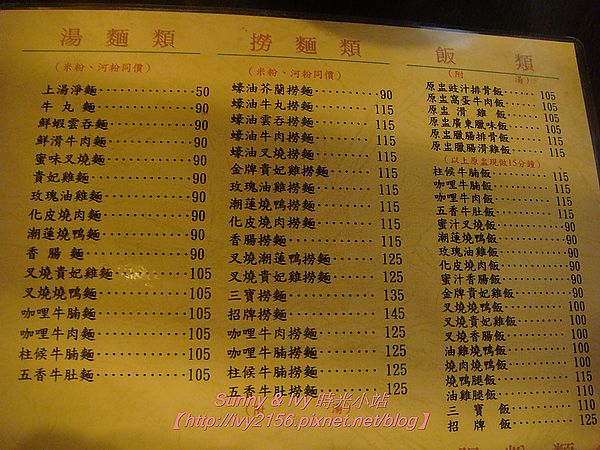 湯麵類
(米粉、河粉同價)
上湯淨麵 50
牛丸麵 90
鮮蝦雲吞麵 90
鮮滑牛肉麵 90
蜜味叉燒麵 90
貴妃雞麵 90
玫瑰油雞麵 90
化皮燒肉麵 90
潮蓮燒鴨麵 90
香腸麵 90
叉燒貴妃雞麵 105
叉燒燒鴨麵 105
咖哩牛腩麵 105
咖哩牛肉麵 105
柱候牛腩麵 105
五香牛肚麵 105
撈麵類
(米粉、河粉同價)
蠔油芥蘭撈麵 90
蠔油牛丸撈麵 115
蠔油雲吞撈麵 115
蠔油牛肉撈麵 115
蠔油叉燒撈麵 115
金牌貴妃雞撈麵 115
玫瑰油雞撈麵 115
潮蓮燒鴨撈麵 115
化皮燒肉撈麵 115
香腸撈麵 115
叉燒潮蓮燒鴨撈麵 125
叉燒貴妃雞撈麵 125
三寶撈麵 135
招牌撈麵 145
咖哩牛肉撈麵 125
咖哩牛腩撈麵 125
柱候牛腩撈麵 125
五香牛肚撈麵 125
飯類
(附湯)
原盅豉汁排骨飯 105
原盅窩蛋牛肉飯 105
原盅滑雞飯 105
原盅廣東臘味飯 105
原盅臘腸排骨飯 115
原盅臘腸滑雞飯 115
(以上原盅現做15分鐘)
柱候牛腩飯 115
咖哩牛腩飯 115
咖哩牛肉飯 115
五香牛肚飯 115
蜜汁叉燒飯 90
潮蓮燒鴨飯 90
玫瑰油雞飯 90
化皮燒肉飯 90
蜜汁香腸飯 90
金牌貴妃雞飯 90
叉燒燒鴨飯 100
叉燒貴妃雞飯 100
叉燒香腸飯 100
油雞燒鴨飯 100
燒肉燒鴨飯 100
燒鴨腿飯 110
油雞腿飯 110
三寶飯 110
招牌飯 125
Sunny & Ivy 時光小站
【http://ivy2156.pixnet.net/blog】